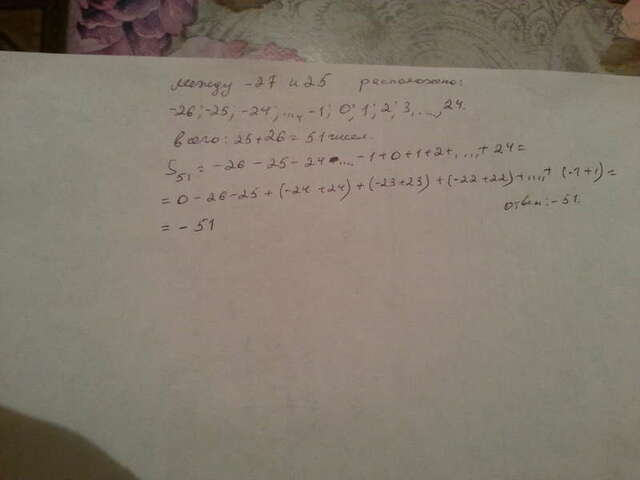 между -27 и 25 расположено:
-26; -25; -24; ..., -1; 0; 1; 2; 3, ..., 24.
всего: 25+26 = 51 чисел.
S₅₁ = -26 - 25 - 24 - ... - 1 + 0 + 1 + 2 + ... + 24 =
= 0 - 26 - 25 + (-24 + 24) + (-23 + 23) + (-22 + 22) + ... + (-1 + 1) =
= - 51
ответ: - 51.